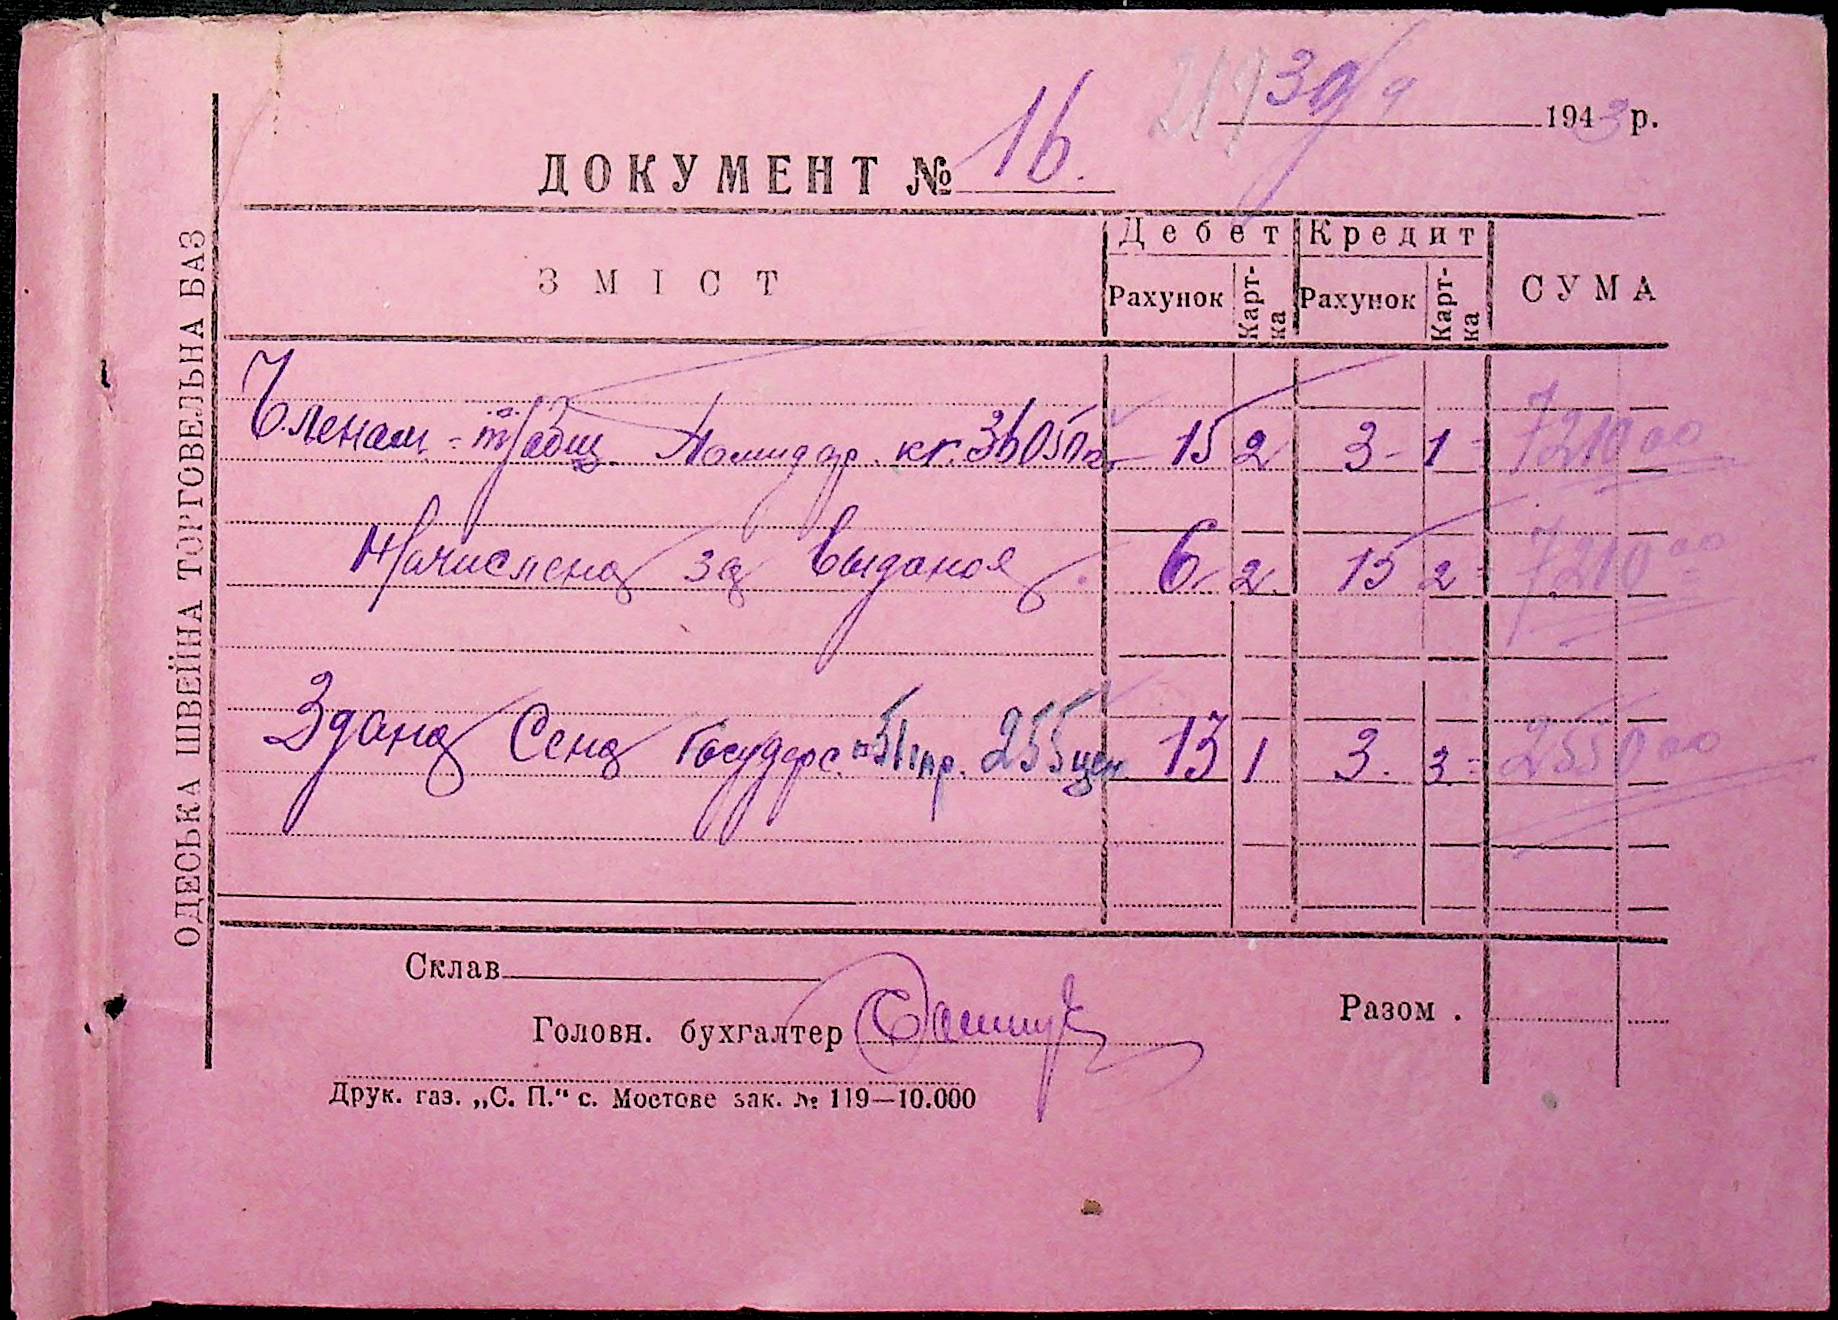 219 30/9 1943 р.
ДОКУМЕНТ № 16.
ОДЕСЬКА ШВЕЙНА ТОРГОВЕЛЬНА БАЗ
ЗМІСТ Дебет Кредит СУМА
Рахунок Карт-ка Рахунок Карт-ка
Членам т/общ. Помидор. кг. 36050 15 2 3 - 1 = 7210 00
Начислено за выданоя. 6 2 15 2 = 7210 00
Здано Сено Государс. 51 пр. 255 цен 13 1 3. 3 = 2550 00
Склав
Головн. бухгалтер
Разом .
Друк. газ. „С. П.“ с. Мостове зак. № 119—10.000